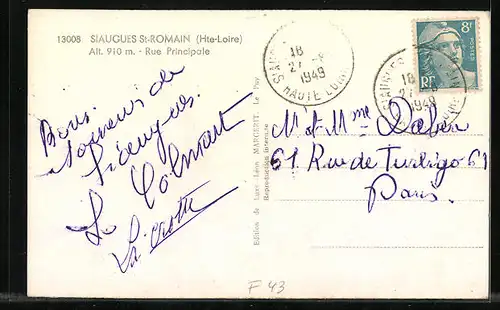 13008 SIAUGUES St-ROMAIN (Hte-Loire)
Alt. 910 m. - Rue Principale
Bons
souvenirs de
Siaugues
Edition de Luxe Léon MARGERIT, Le Puy
Reproduction interdite
18
27 -8
1949
HAUTE LOIRE
8F
POSTES
RF
18
27 -8
1949
M et Mme
61 Rue de Turbigo 61
Paris.
F 43